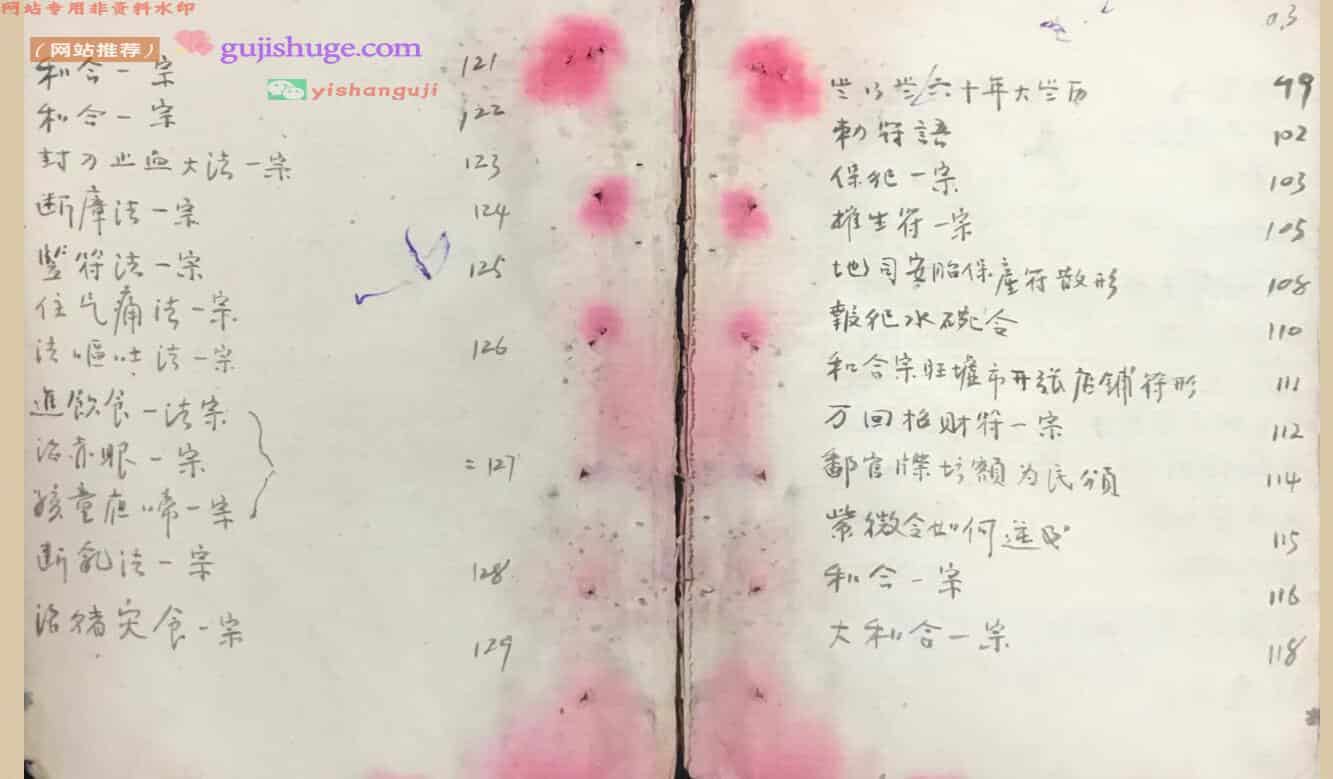 网站专用非资料水印
(网站推荐)
gujishuge.com
yishanguji
和合一宗 121
和合一宗 122
封刀止血大法一宗 123
断瘴法一宗 124
竖符法一宗 125
住气痛法一宗
法呕吐法一宗 126
進飲食一法宗
治赤眼一宗 =127
孩童夜啼一宗
断乳法一宗 128
治猪灾食一宗 129
03
六十年大 历 99
符語 102
保犯一宗 103
推生符一宗 105
地司安胎保產符散形 108
犯水碗合 110
和合宗旺墟市开張店鋪符形 111
万回招财符一宗 112
官 额为民 114
紫微令如何 115
和合一宗 116
大和合一宗 118